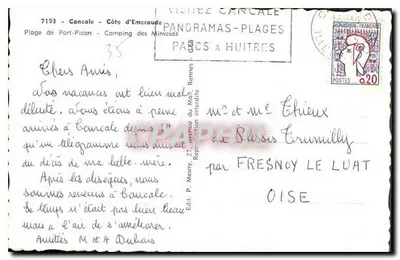 7193 - Cancale - Côte d'Emeraude
Plage de Port-Pican - Camping des Mimosas
35
VISITEZ CANCALE
PANORAMAS-PLAGES
PARCS A HUITRES
REPUBLIQUE FRANÇAISE
POSTES 0,20
Chers Amis,
Nos vacances ont bien mal
débuté. Nous étions à peine
arrivés à Cancale depuis
qu'un télégramme nous avisait
du décès de ma belle-mère.
Après les obsèques, nous
sommes revenus à Cancale.
Le temps n'était pas bien beau
mais a l'air de s'améliorer.
Amitiés M et A Dubois
Edit. P. Mesny, 27, avenue du Mail, Rennes
Reproduction interdite
Mr et Me Thieux
Le Plessis Cornefroy
par FRESNOY LE LUAT
OISE